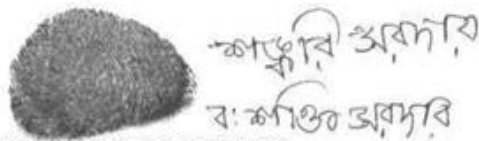 শঙ্করি সরদার
ব: শক্তি সরদার